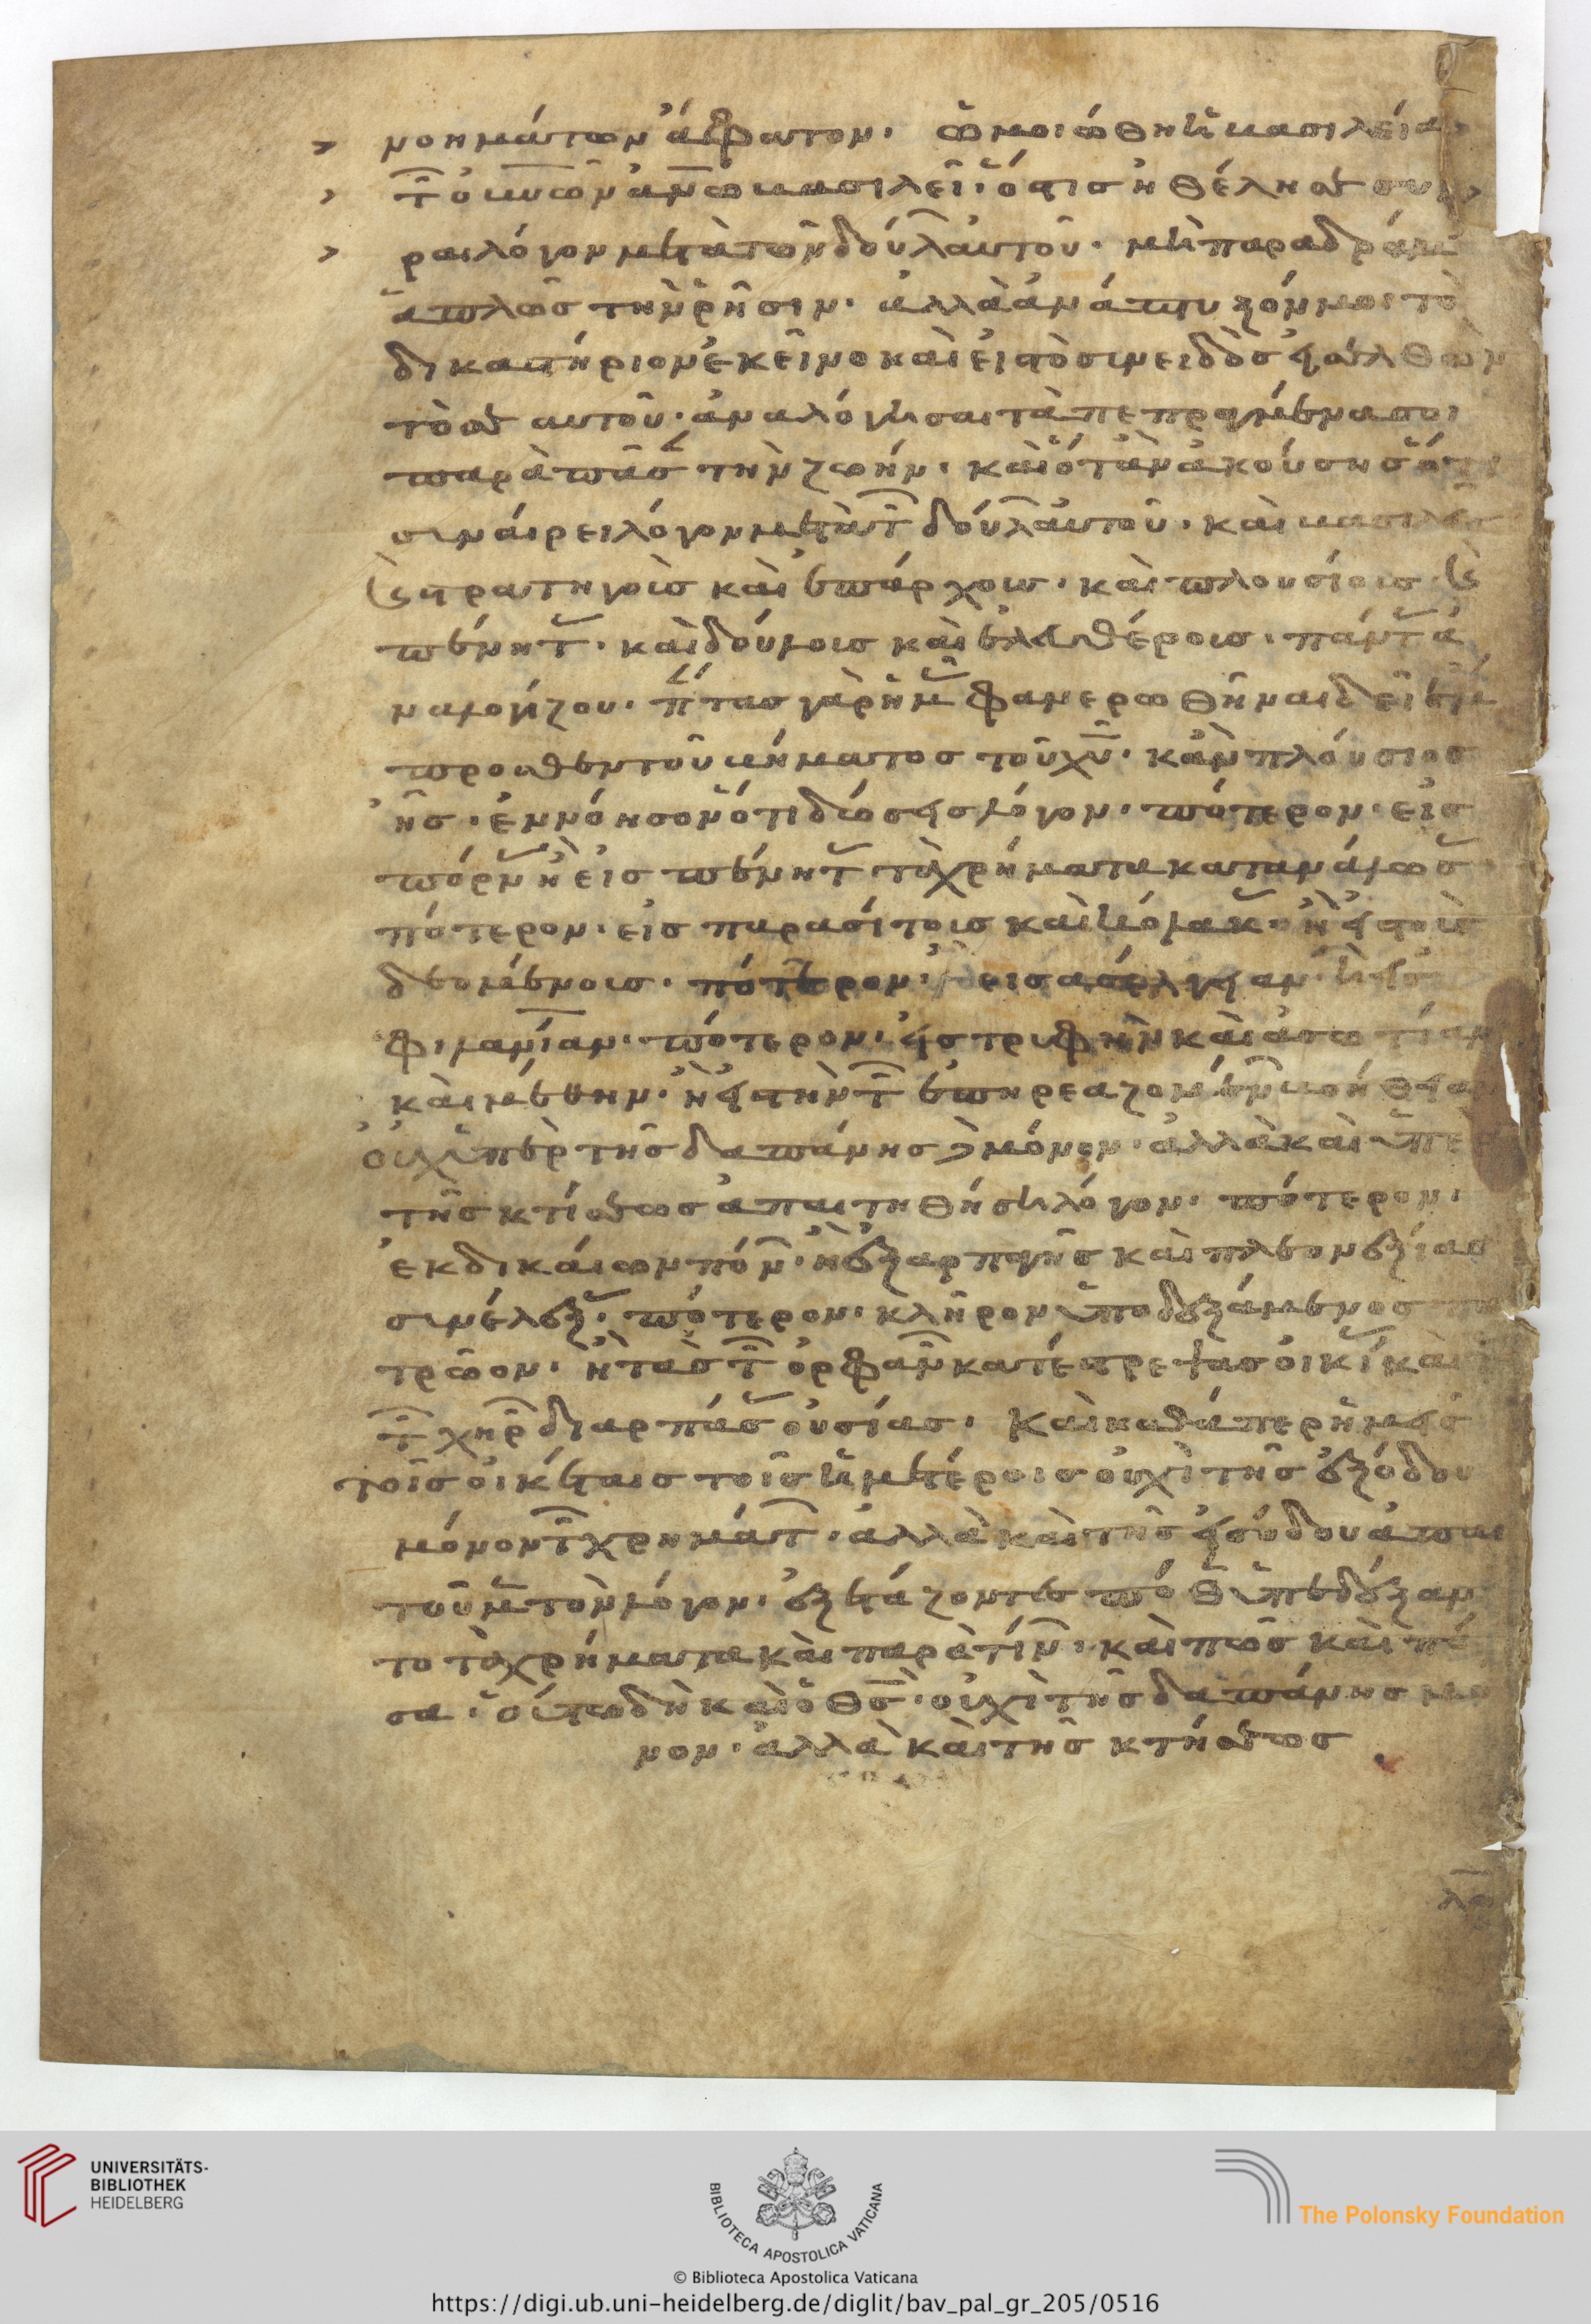 > νοημάτων ἄβατον. ὡμοιώθη ἡ βασιλεία
> τ̑ οὐνῶν ἀνω̅ βασιλεῖ· ὅστις ἠθέλησε συν
> ραι λόγον μετὰ τῶν δούλ̑ αὐτοῦ. μὴ παραδράμ
ἁπλῶς τὴν ῥῆσιν. ἀλλὰ ἀνάπτυξόν μοι τὸ
δικαστήριον ἐκεῖνο καὶ εἰς τὸ συνειδὸς εἰσελθὼν
τὸ σε αυτοῦ. ἀναλόγησαι τὰ πεπραγμένα σοι
παρὰ πᾶσ τὴν ζωήν. καὶ ὅταν ἀκούσης ὅτι
συναίρει λόγον μετὰ τ̑ δούλ̑ αὐτοῦ. καὶ βασιλεῖς
καὶ στρατηγοὺς καὶ ἐπάρχους. καὶ πλουσίους καὶ
πένητ̆. καὶ δούλους καὶ ἐλευθέρους. πάντ̆ ἀ
ναλογίζου. π̅τας γὰρ ἡμ̆ φανερωθῆναι δεῖ ἔμ
προσθεν τοῦ βήματος τοῦ χ̅υ̅. κἂν πλούσιος
ἦς. ἐννόησον ὅτι δώσεις λόγον. πότερον. εἰς
πόρν̆ ἢ εἰς πένητ̆ τὰ χρήματα κατανάλωσ̆
πότερον. εἰς παρασίτους καὶ κόλακ̆. ἢ εἰς τοὺς
δεομένους. πότερον. εἰς ἀσέλγειαν ἢ εἰς
φιλαν̅ίαν. πότερον. εἰς τρυφὴν καὶ ἀσωτίαν
καὶ μέθην. ἢ εἰς τὴν τ̑ ἐπηρεαζομέν̑ βοήθειαν
οὐχ ὑπὲρ τῆς δαπάνης δὲ μόνον. ἀλλὰ καὶ ὑπὲρ
τῆς κτίσεως ἀπαιτηθήση λόγον. πότερον.
ἐκ δικαίων πόν̑. ἢ ἐξ ἁρπαγῆς καὶ πλεονεξίας
συνέλεξ̆. πότερον. κλῆρον ὑποδεξάμενος πα
τρῶον. ἢ τὰς τ̑ ὀρφαν̑ κατέστρεψας οἰκί̆ καὶ
τ̑ χηρ̑ διαρπάσ̆ οὐσίας. Καὶ καθάπερ ἡμεῖς
τοῖς οἰκέταις τοῖς ἡμετέροις οὐχὶ τῆς ἐξόδου
μόνον τ̑ χρημάτ̑. ἀλλὰ καὶ τῆς εἰσόδου ἀπαι
τοῦμ̅ τὸν λόγον. ἐξετάζοντες πόθ̅ ὑπεδέξαν
το τὰ χρήματα καὶ παρὰ τίν̑. καὶ πῶς καὶ πό
σα. οὕτω δὴ καὶ ὁ θ̅ς̅. οὐχὶ τῆς δαπάνης μό
νον. ἀλλὰ καὶ τῆς κτήσεως
UNIVERSITÄTS-
BIBLIOTHEK
HEIDELBERG
BIBLIOTECA APOSTOLICA VATICANA
The Polonsky Foundation
© Biblioteca Apostolica Vaticana
https://digi.ub.uni-heidelberg.de/diglit/bav_pal_gr_205/0516